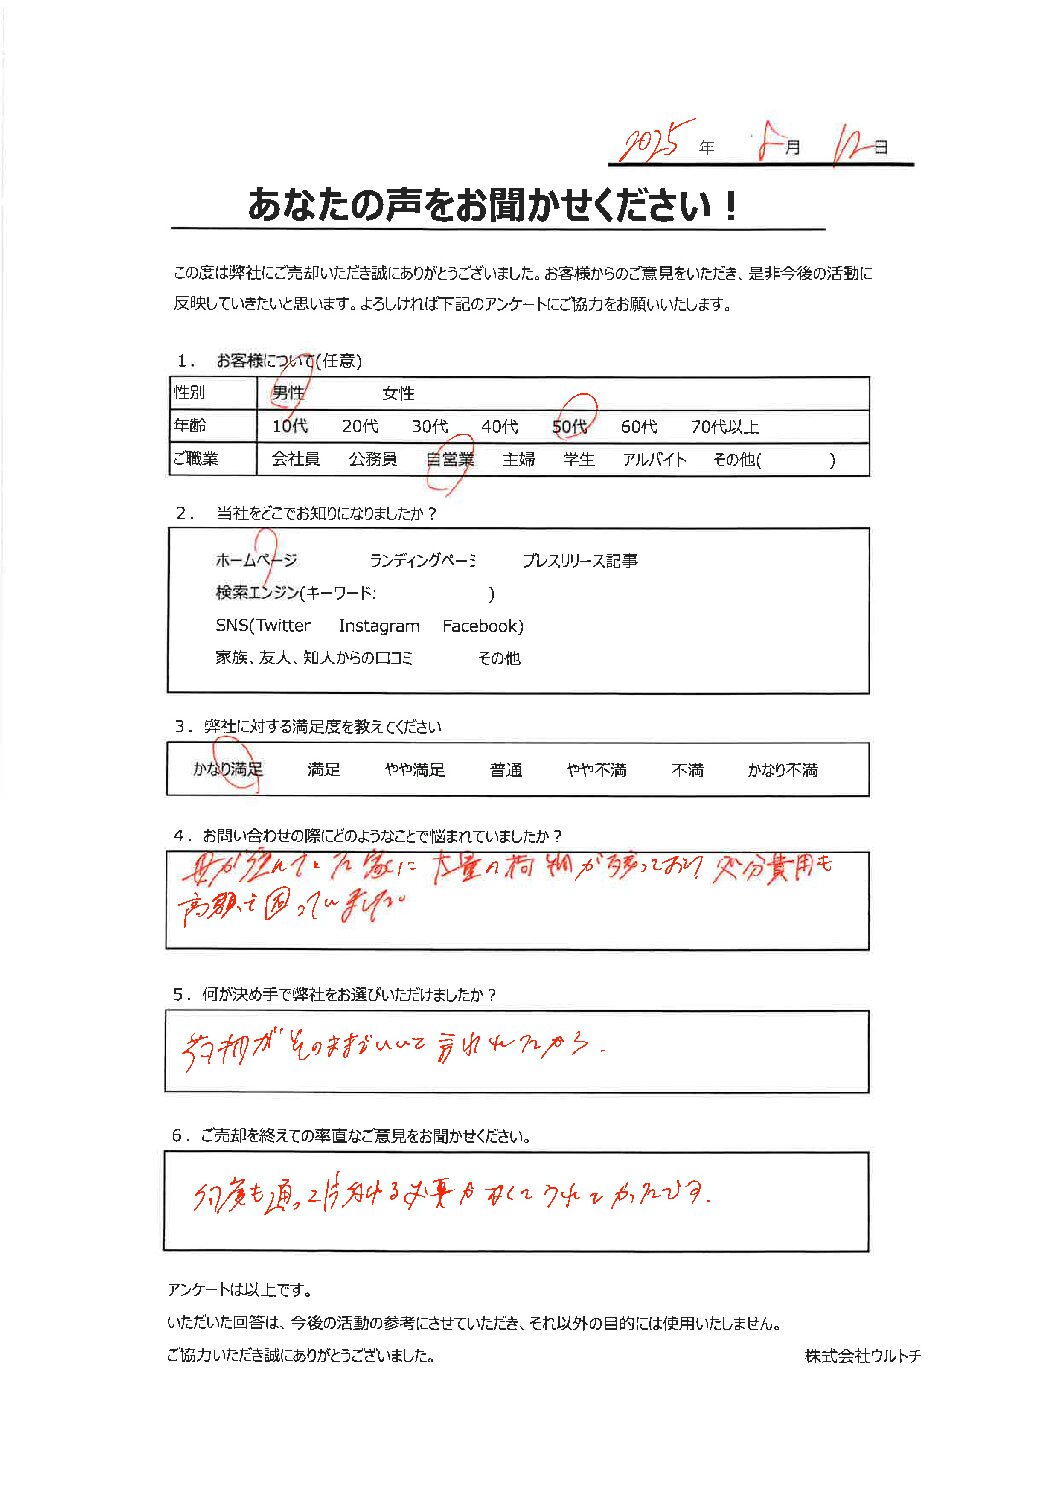 2025 年 8月 12日
あなたの声をお聞かせください！
この度は弊社にご売却いただき誠にありがとうございました。お客様からのご意見をいただき、是非今後の活動に
反映していきたいと思います。よろしければ下記のアンケートにご協力をお願いいたします。
１． お客様について(任意)
性別 男性 女性
年齢 10代 20代 30代 40代 50代 60代 70代以上
ご職業 会社員 公務員 自営業 主婦 学生 アルバイト その他( )
２． 当社をどこでお知りになりましたか？
ホームページ ランディングページ プレスリリース記事
検索エンジン(キーワード: )
SNS(Twitter Instagram Facebook)
家族、友人、知人からの口コミ その他
３．弊社に対する満足度を教えてください
かなり満足 満足 やや満足 普通 やや不満 不満 かなり不満
４．お問い合わせの際にどのようなことで悩まれていましたか？
母が住んでいた家に大量の荷物が残っており処分費用も
高額で困っていました。
５．何が決め手で弊社をお選びいただけましたか？
荷物がそのままでいいと言われたから.
６．ご売却を終えての率直なご意見をお聞かせください。
何度も通って片分ける必要がなくてうれしかったです.
アンケートは以上です。
いただいた回答は、今後の活動の参考にさせていただき、それ以外の目的には使用いたしません。
ご協力いただき誠にありがとうございました。
株式会社ウルトチ